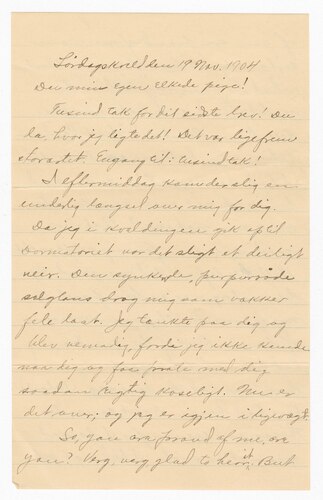 Lördagskvelden 19 Nov. 1904
Du min egen elskede pige!
Tusind tak for dit sidste brev! Du
la, hvor jeg ligte det! Det var ligefrem
storartet. Engang til: tusind tak!
I eftermiddag kom der slig en
underlig længsel over mig for dig.
Da jeg i kveldingen gik op til
Dormatoriet var det sligt et deiligt
veir. Den synkende, purpurröde
solglans drog mig som vakker
file last. Jeg tænkte paa dig og
blev vemodig, fordi jeg ikke kunde
naa dig og faa prate med dig
saadan rigtig koseligt. Nu er
det over; og jeg er igjen i ligevægt.
So, you are proud of me, are
you? Very, very glad to hear it. But